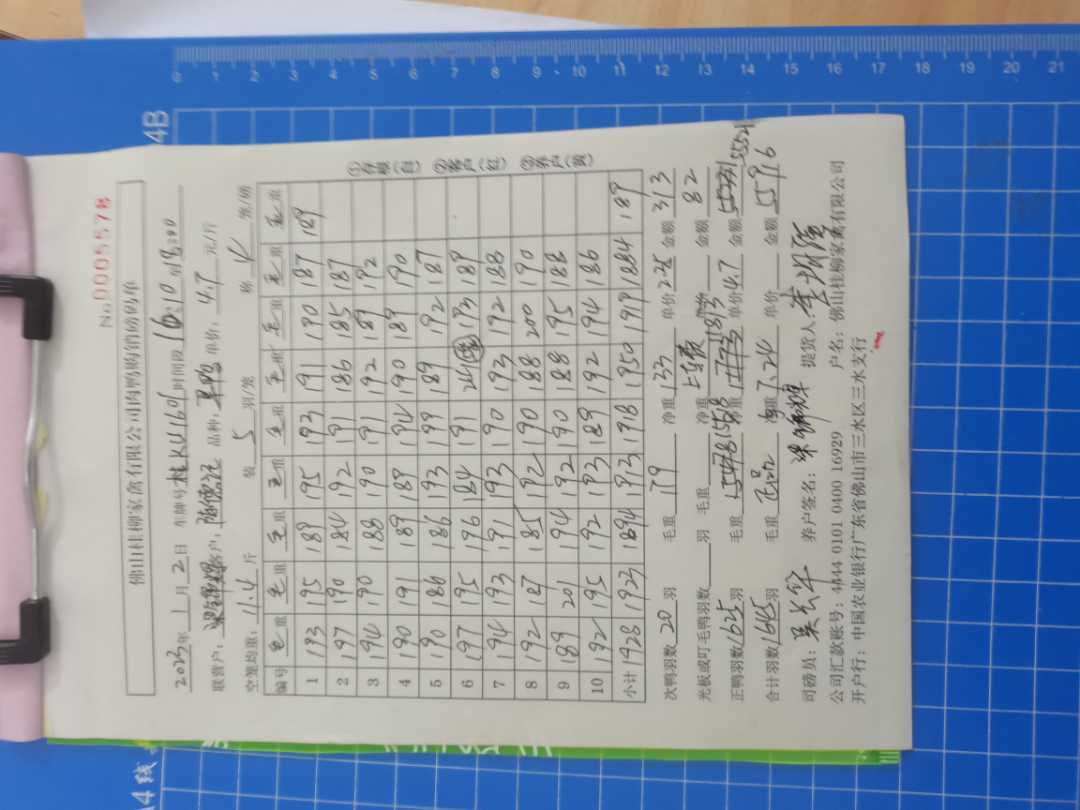 No 0005578
佛山桂柳家禽有限公司肉鸭购销磅码单
2023年 1 月 2 日 车牌号 桂KU1601 时间段 16:10 到 18:00
联营户: 客户: 品种: 单价: 4.7 元/斤
空笼均重: 11.4 斤 装 5 羽/笼 称 4 笼/磅
编号 毛重 毛重 毛重 毛重 毛重 毛重 毛重 毛重 毛重
1 193 195 189 195 193 191 190 187 189
2 197 190 184 192 191 186 185 187
3 194 190 188 190 191 192 189 192
4 190 191 189 189 194 190 189 190
5 190 186 186 193 199 189 192 187
6 197 195 196 184 191 193 189
7 194 193 191 193 190 193 192 188
8 192 187 185 192 190 188 200 190
9 189 201 194 192 190 188 195 188
10 192 195 192 193 189 192 194 186
小计 1928 1923 1894 1913 1918 1950 1919 1884 189
次鸭羽数 20 羽 毛重 179 净重 133 单价 2.35 金额 313
光板或叮毛鸭羽数 羽 毛重 净重 单价 金额 82
正鸭羽数 1625 羽 毛重 净重 单价 4.7 金额
合计羽数 1645 羽 毛重 净重 7.24 单价 金额 55916
司磅员: 吴长华 养户签名: 提货人:
公司汇款账号: 4444 0101 0400 16929 户名: 佛山桂柳家禽有限公司
开户行: 中国农业银行广东省佛山市三水区三水支行
①存根(白) ②客户(红) ③客户(黄)
0 1 2 3 4 5 6 7 8 9 10 11 12 13 14 15 16 17 18 19 20 21
4B
A4 线